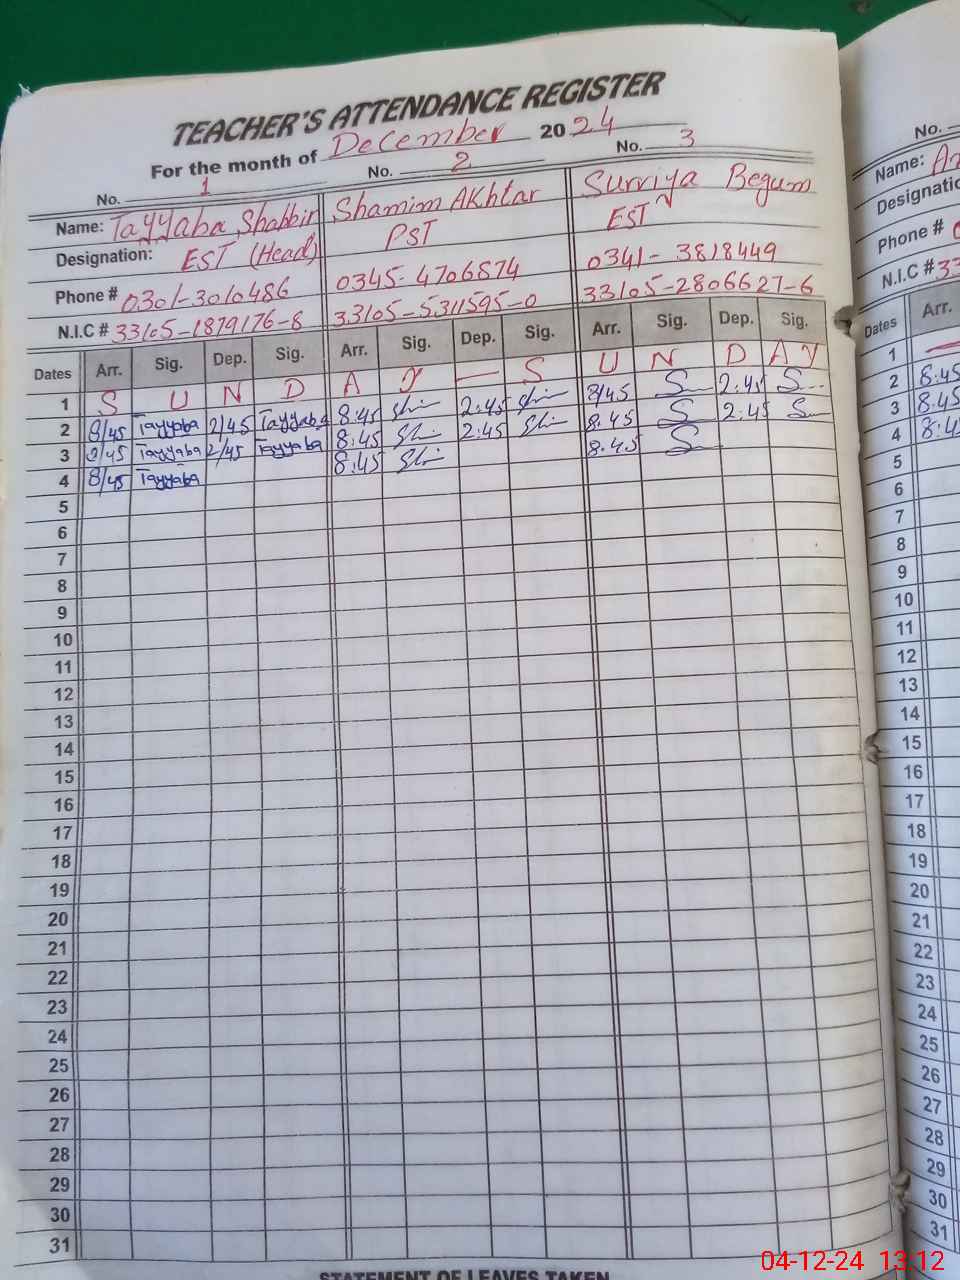 TEACHER'S ATTENDANCE REGISTER
For the month of December 2024
No. 1 No. 2 No. 3
Name: Tayyaba Shabbir Shamim Akhtar Surriya Begum
Designation: EST (Head) PST EST
Phone # 0301-3010486 0345-4706874 0341-3818449
N.I.C # 33105-1879176-8 33105-5311595-0 33105-2806627-6
Dates Arr. Sig. Dep. Sig. Arr. Sig. Dep. Sig. Arr. Sig. Dep. Sig.
1 S U N D A Y — S U N D A Y
2 8/45 Tayyaba 2/45 Tayyaba 8:45 2:45 8/45 S 2:45 S
3 8/45 Tayyaba 2/45 Tayyaba 8:45 2:45 8.45 S 2:45 S
4 8/45 Tayyaba 8:45 8.45 S
5
6
7
8
9
10
11
12
13
14
15
16
17
18
19
20
21
22
23
24
25
26
27
28
29
30
31
STATEMENT OF LEAVES TAKEN
No.
Name:
Designatio
Phone #
N.I.C # 33
Dates Arr.
1
2 8:45
3 8:45
4 8:45
5
6
7
8
9
10
11
12
13
14
15
16
17
18
19
20
21
22
23
24
25
26
27
28
29
30
31
04-12-24 13:12